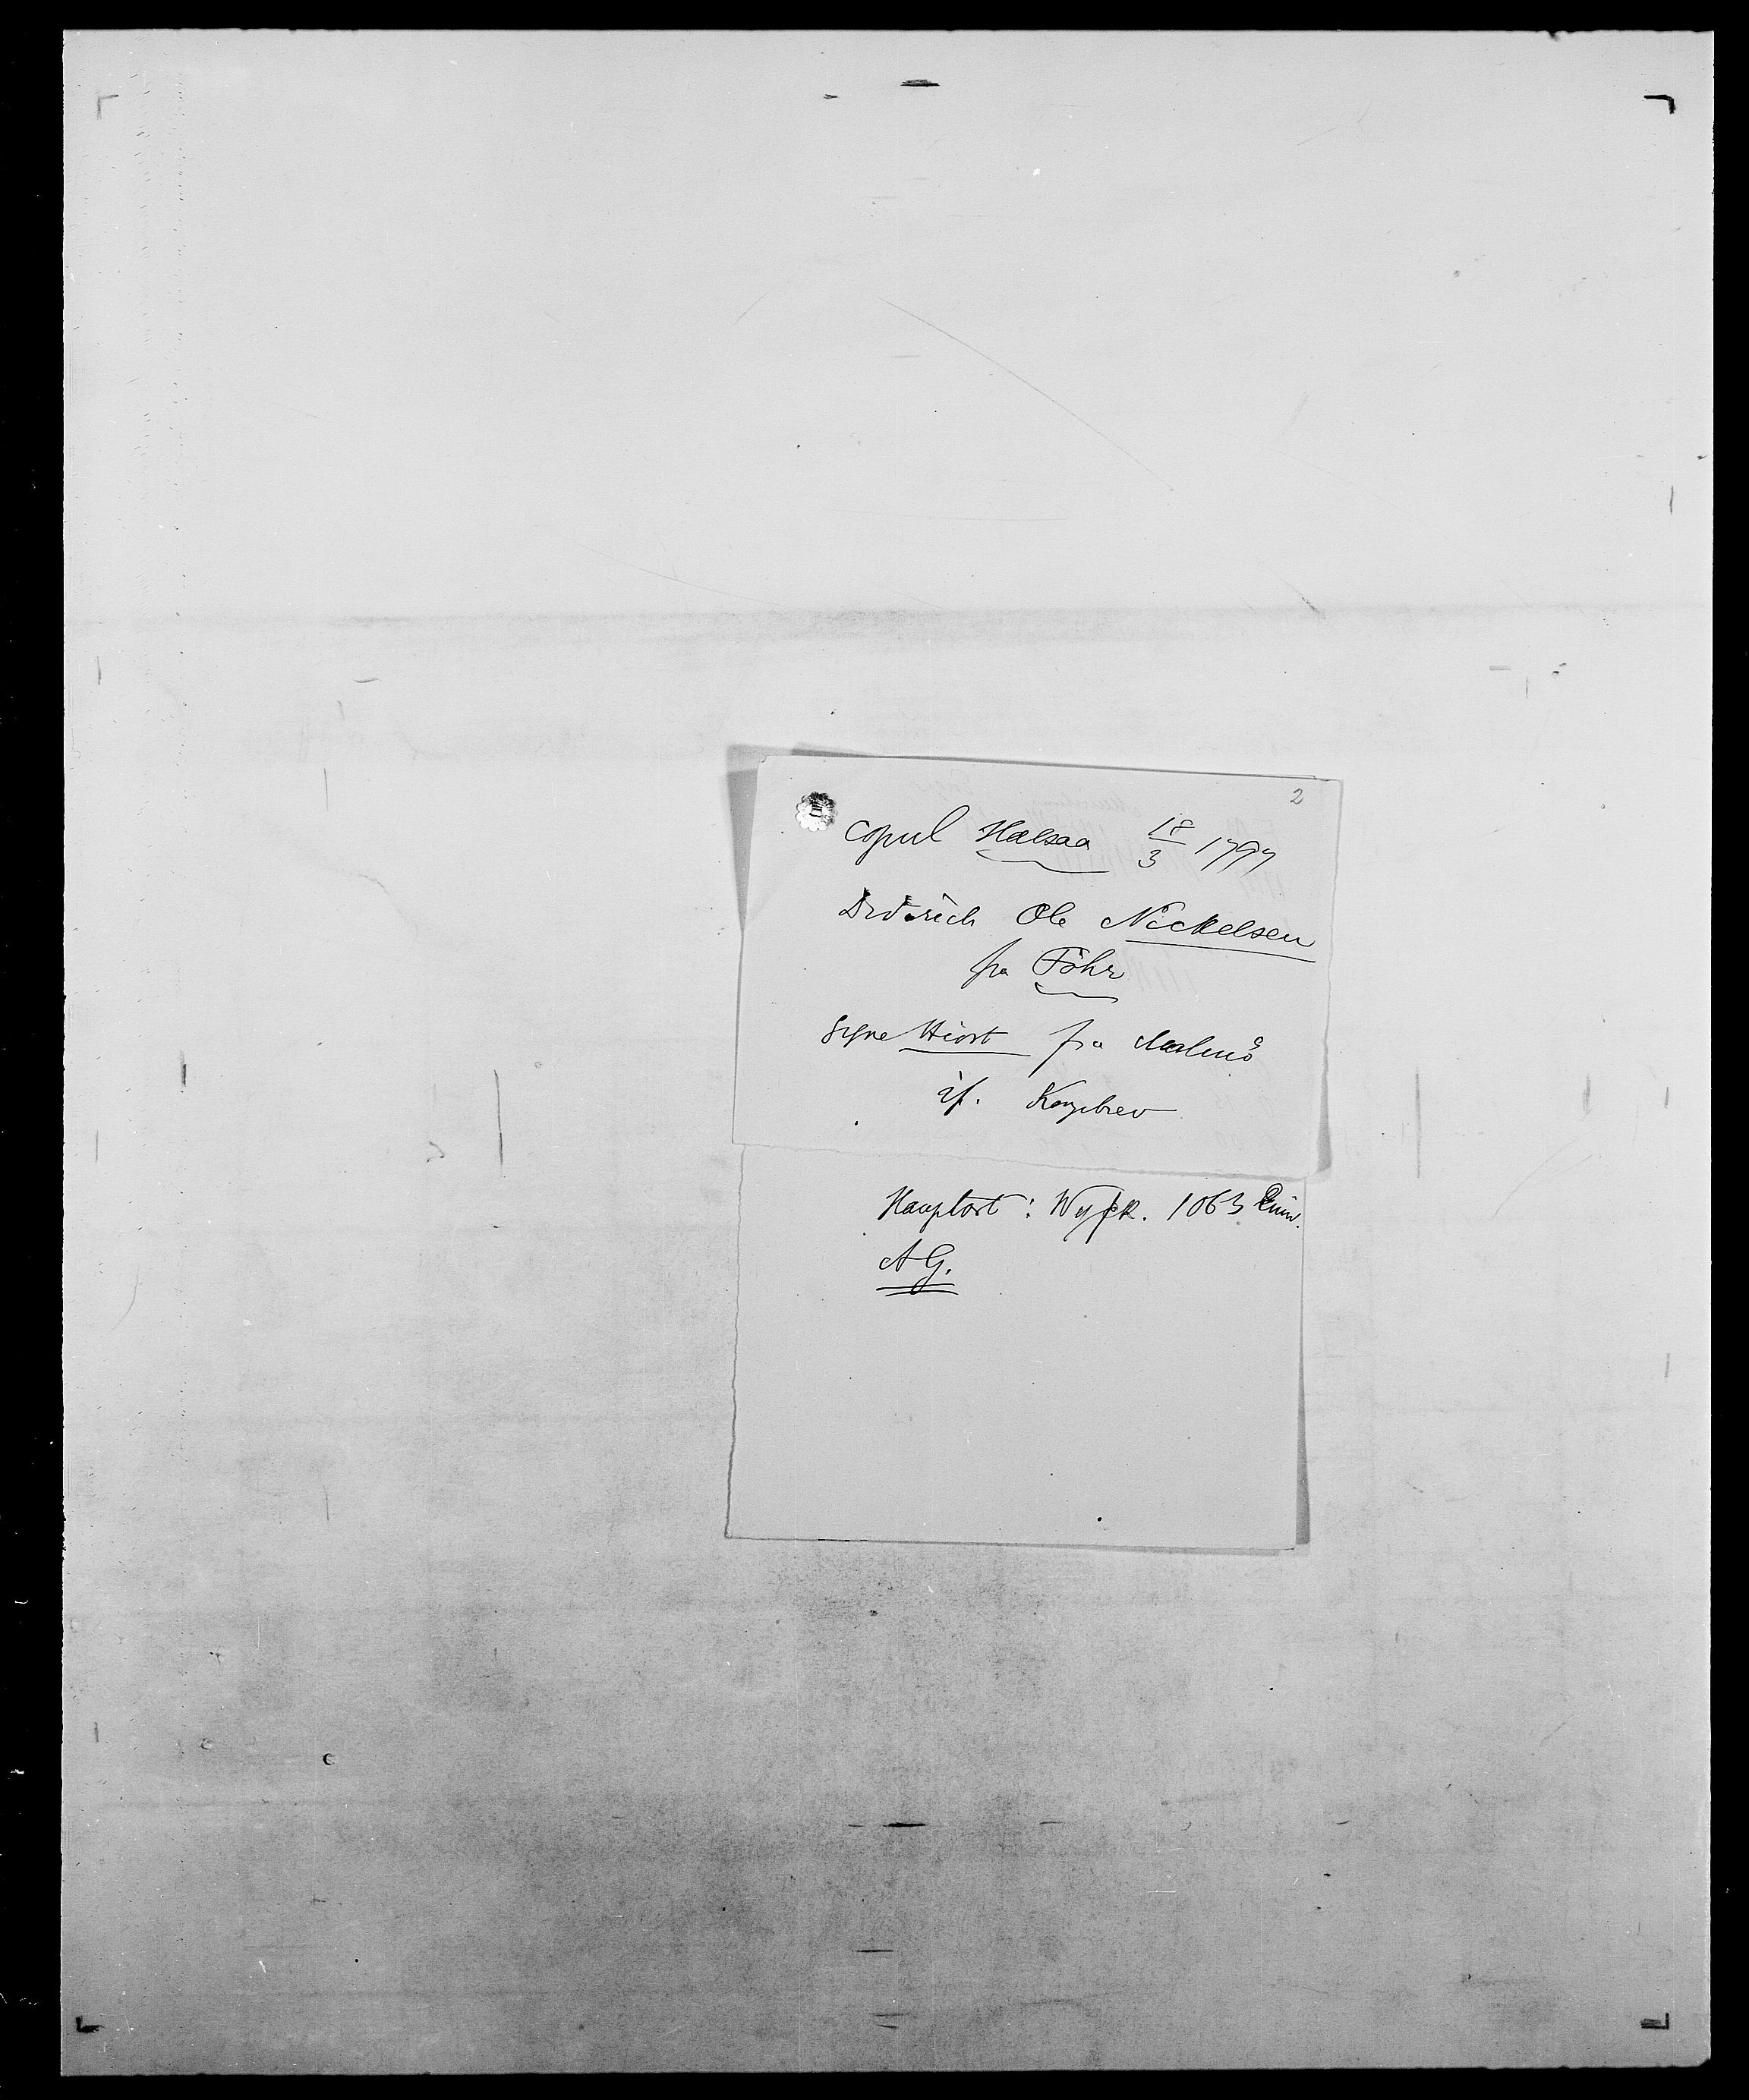 2
copul Halsaa 18/3 1797
Didrich Ole Nickelsen
fra Föhr
Signe Hiort fra Malmö
if. Kongebrev
Hauptort: Wyck. 1063 Einw.
AG.